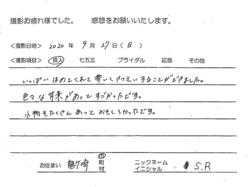 撮影お疲れ様でした。 感想をお願いいたします。
<撮影日時> 2020年 9月 27日 (日)
<撮影項目> 成人 七五三 ブライダル 記念 その他
いっぱいほめてくれて楽しくさつえいすることができました。
色々な背景があってすごかったです。
小物もたくさんあっておもしろかったです。
お住まい 市 町 村 ニックネーム イニシャル S.R